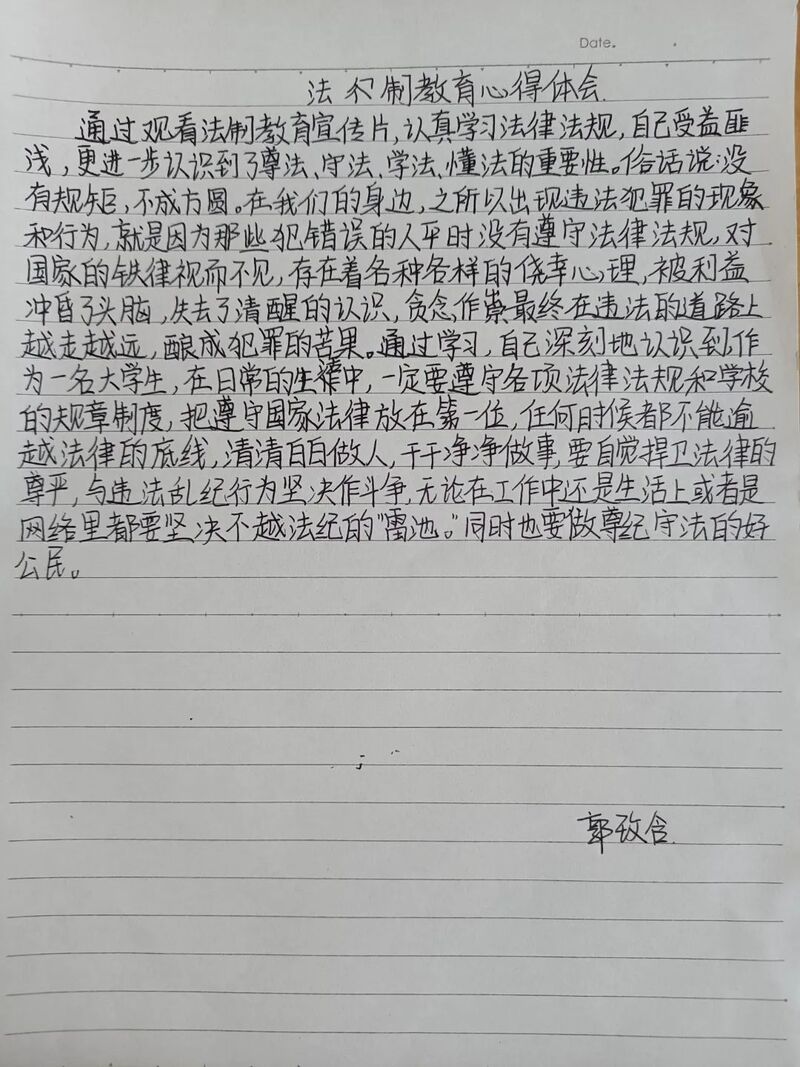 Date.
法制教育心得体会.
通过观看法制教育宣传片,认真学习法律法规,自己受益匪
浅,更进一步认识到了尊法、守法、学法、懂法的重要性。俗话说:没
有规矩,不成方圆。在我们的身边,之所以出现违法犯罪的现象
和行为,就是因为那些犯错误的人平时没有遵守法律法规,对
国家的铁律视而不见,存在着各种各样的侥幸心理,被利益
冲昏了头脑,失去了清醒的认识,贪念作祟最终在违法的道路上
越走越远,酿成犯罪的苦果。通过学习,自己深刻地认识到作
为一名大学生,在日常的生活中,一定要遵守各项法律法规和学校
的规章制度,把遵守国家法律放在第一位,任何时候都不能逾
越法律的底线,清清白白做人,干干净净做事,要自觉捍卫法律的
尊严,与违法乱纪行为坚决作斗争,无论在工作中还是生活上或者是
网络里都要坚决不越法纪的"雷池。"同时也要做尊纪守法的好
公民。
郭玫含